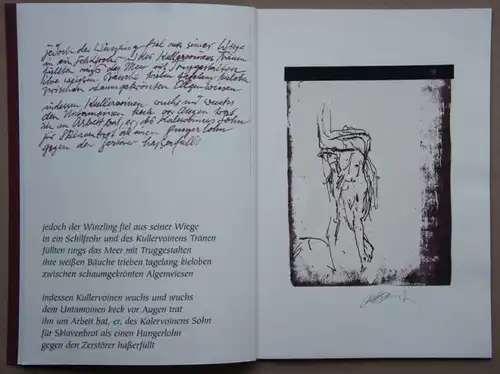 jedoch der Winzling fiel aus seiner Wiege
in ein Schilfrohr und des Kullervoinens Tränen
füllten rings das Meer mit Truggestalten
ihre weißen Bäuche trieben tagelang kieloben
zwischen schaumgekrönten Algenwiesen
indessen Kullervoinen wuchs und wuchs
dem Untamoinen keck vor Augen trat
ihn um Arbeit bat, er, des Kalervoinens Sohn
für Sklavenbrot als einen Hungerlohn
gegen der Zerstörer haßerfüllt
jedoch der Winzling fiel aus seiner Wiege
in ein Schilfrohr und des Kullervoinens Tränen
füllten rings das Meer mit Truggestalten
ihre weißen Bäuche trieben tagelang kieloben
zwischen schaumgekrönten Algenwiesen
indessen Kullervoinen wuchs und wuchs
dem Untamoinen keck vor Augen trat
ihn um Arbeit bat, er, des Kalervoinens Sohn
für Sklavenbrot als einen Hungerlohn
gegen den Zerstörer haßerfüllt